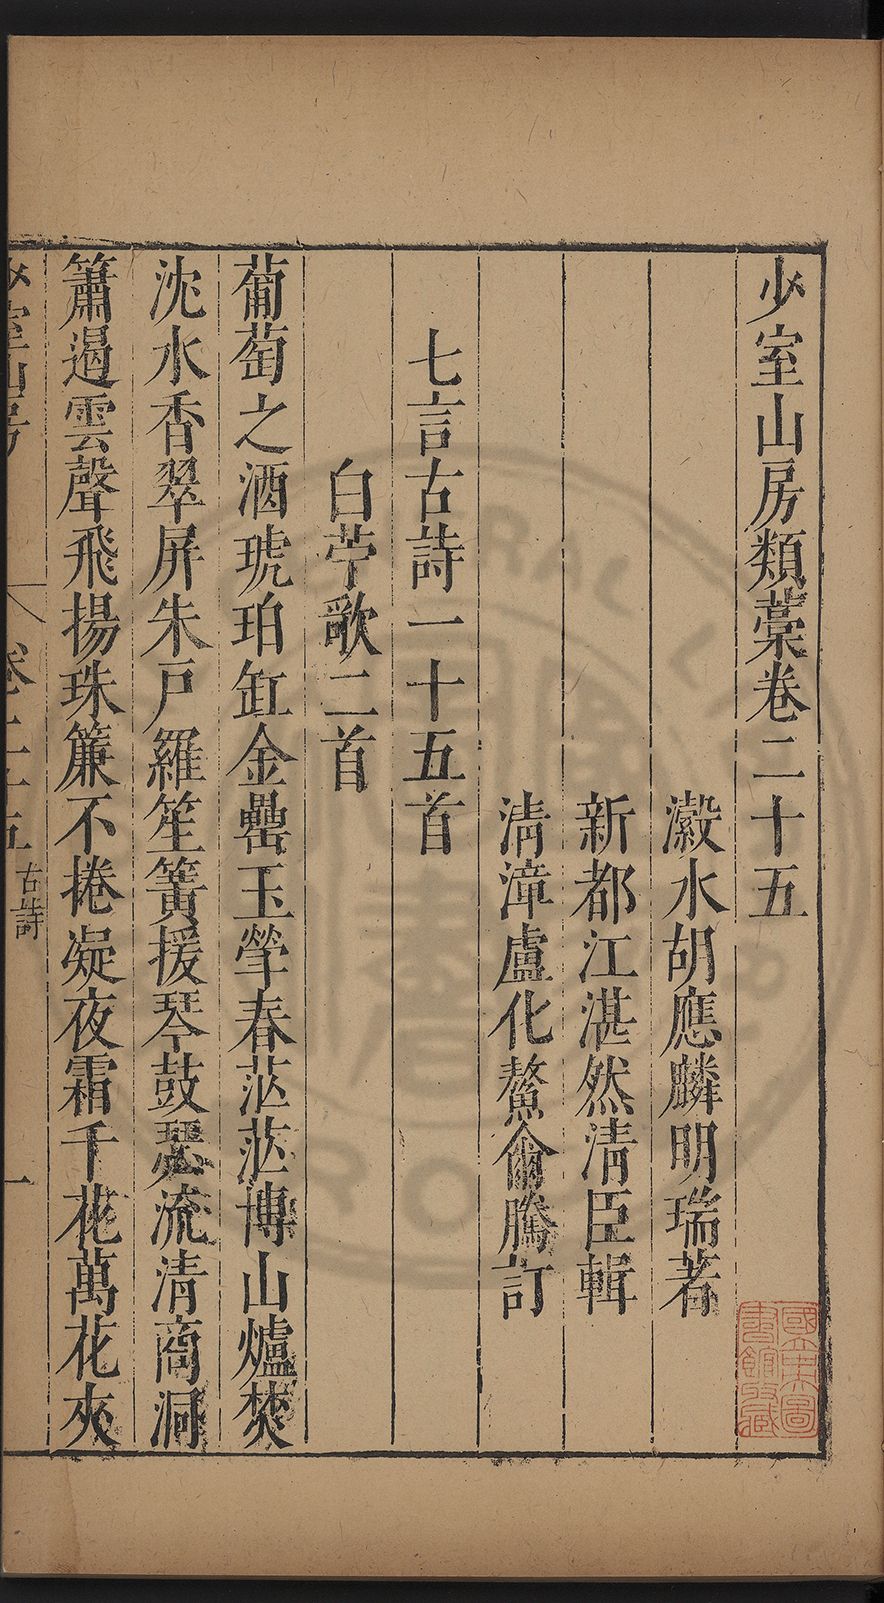 少室山房類藁卷二十五
瀫水胡應麟明瑞著
新都江湛然清臣輯
清漳盧化鰲侖騰訂
七言古詩一十五首
白苧歌二首
葡萄之酒琥珀缸金罍玉斝春茫茫博山爐焚
沈水香翠屏朱戸羅笙簧援琴鼓瑟流清商洞
簫遏雲聲飛揚珠簾不捲凝夜霜千花萬花夾
少室山房
卷二十五
古詩
一
國立中央圖書館收藏